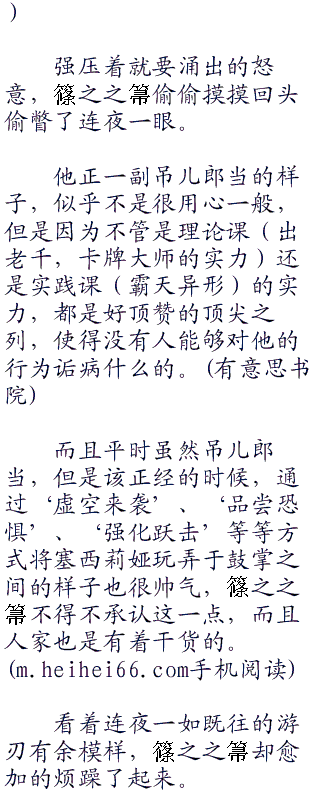 )
强压着就要涌出的怒
意，篠之之箒偷偷摸摸回头
偷瞥了连夜一眼。
他正一副吊儿郎当的样
子，似乎不是很用心一般，
但是因为不管是理论课（出
老千，卡牌大师的实力）还
是实践课（霸天异形）的实
力，都是好顶赞的顶尖之
列，使得没有人能够对他的
行为诟病什么的。(有意思书
院)
而且平时虽然吊儿郎
当，但是该正经的时候，通
过‘虚空来袭’、‘品尝恐
惧’、‘强化跃击’等等方
式将塞西莉娅玩弄于鼓掌之
间的样子也很帅气，篠之之
箒不得不承认这一点，而且
人家也是有着干货的。
(m.heihei66.com手机阅读)
看着连夜一如既往的游
刃有余模样，篠之之箒却愈
加的烦躁了起来。